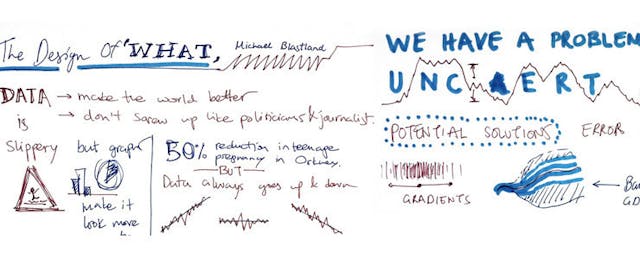 The Design Of "WHAT,
Michael Blastland
DATA → make the world better
is → don't screw up like politicians & journalist.
Slippery
but graph
make it
look more
50% reduction in teenage
pregnancy in Orkney.
BUT
Data always goes up & down
WE HAVE A PROBLEM
UNCERT
POTENTIAL SOLUTIONS
ERROR
GRADIENTS
← Ban
GD